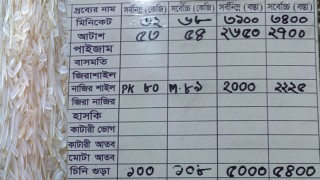 দ্রব্যের নাম সর্বনিম্ন (কেজি) সর্বোচ্চ (কেজি) সর্বনিম্ন (বস্তা) সর্বোচ্চ (বস্তা)
মিনিকেট ৬২ ৬৮ ৩১০০ ৩৪০০
আটাশ ৫৩ ৫৪ ২৬৫০ ২৭০০
পাইজাম
বাসমতি
জিরাশাইল
নাজির শাইল PK ৪০ M-৮৯ 2000
জিরা নাজির
হাসকি
কাটারী ভোগ
কাটারী আতব
মোটা আতব
চিনি গুড়া ১০০ ১০৮ ৫০০০ ৫৪০০